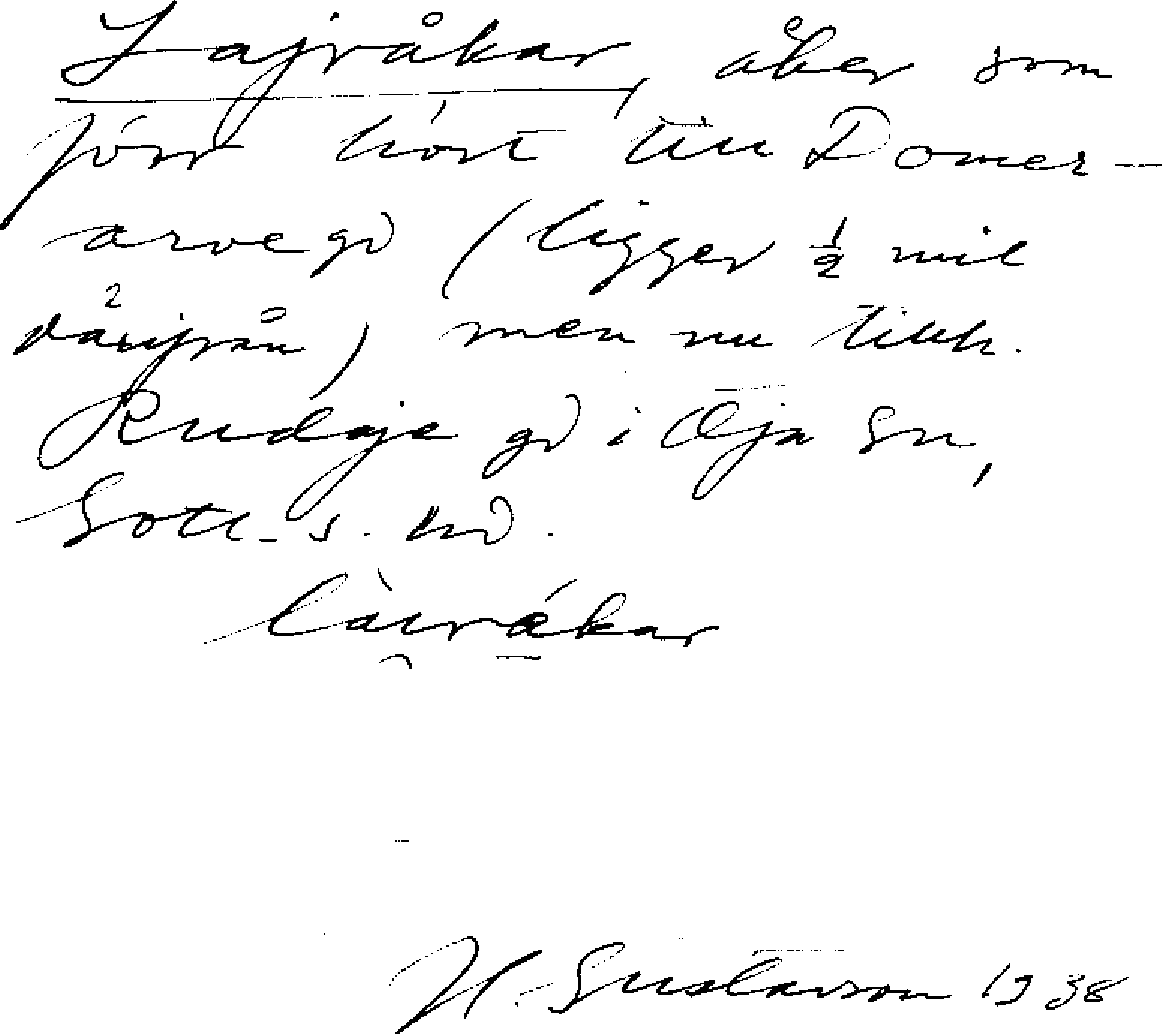 Lajråkar, åker som
förr hört till Domer-
arve gd (ligger 1/2 mil
därifrån) men nu tillh.
Rudvje gd i Öja sn,
Gotl. s. hd.
làirákar
H. Gustavson 1938